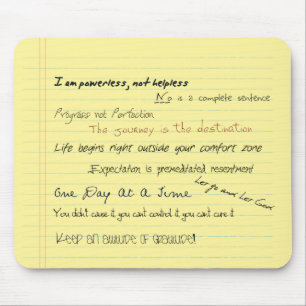 I am powerless, not helpless
No is a complete sentence
Progress not Perfection
The journey is the destination
Life begins right outside your comfort zone
Expectation is premeditated resentment
Let go and Let God
One Day At A Time
You didn't cause it, you can't control it, you can't cure it
Keep an attitude of gratitude!